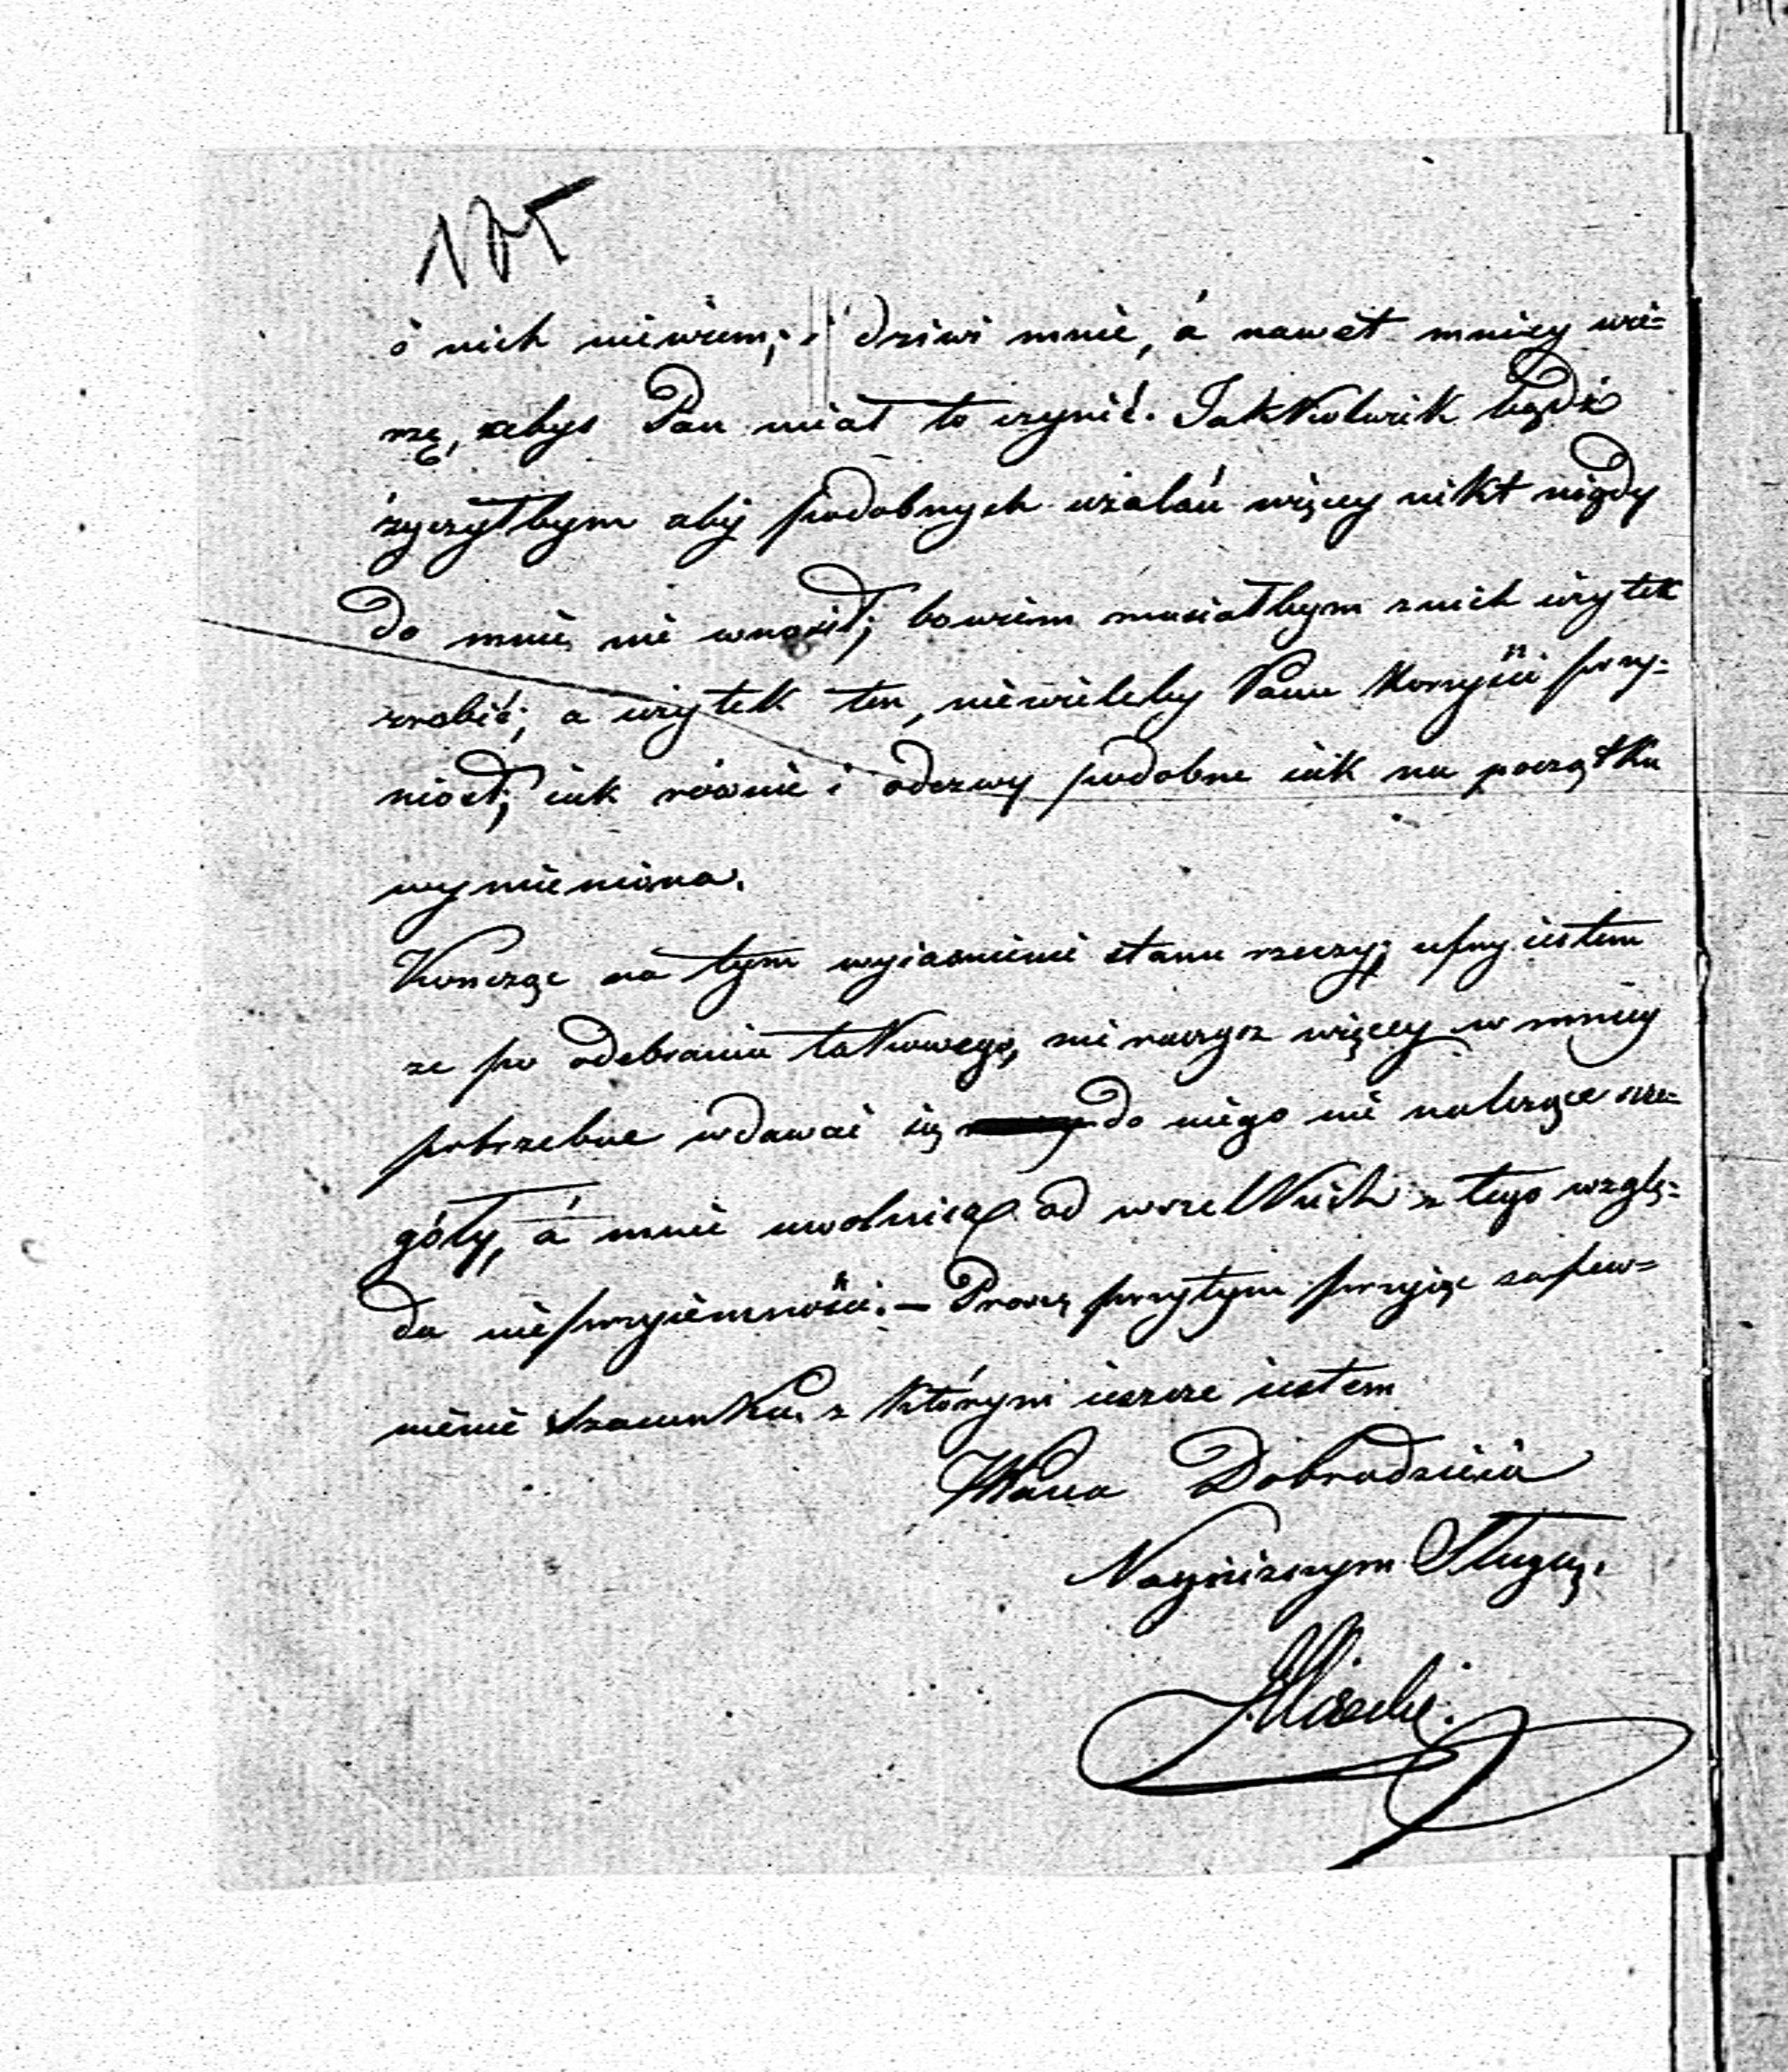 105
ó nich niewiem; i dziwi mnie, á nawet mniey wie=
rzę, abys Pan miał to czynić. Jakkolwiek bądź
życzyłbym aby podobnych użalań więcey nikt nigdy
do mnie nie wnosił; bowiem musiałbym z nich użytek
zrobić; a użytek ten, niewieleby Panu Korzyści przy=
niosł; iak równie i odezwy podobne iak na początku
wymieniona.
Koncząc na tym wyiasnienie stanu rzeczy; ufny iestem
ze po odebraniu takowego, nie raczysz więcey w mniey
potrzebne wdawać się do niego nie należące szcze=
góły, á mnie uwolnisz od wszelkich z tego wzglę=
du nieprzyiemności. — Proszę przytym przyiąc zapew=
nienie Szacunku z którym ieszcze iestem
WPana Dobrodzieia
Nayniższym Sługą.